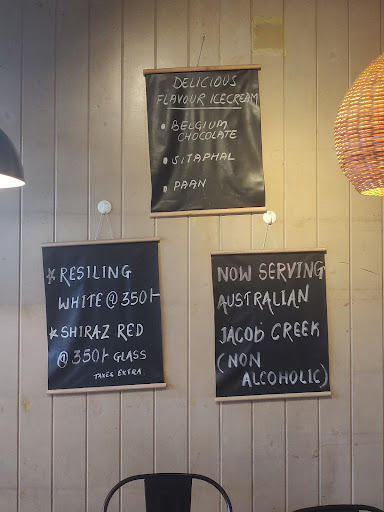 DELICIOUS
FLAVOUR ICECREAM
• BELGIUM
CHOCOLATE
• SITAPHAL
• PAAN
* RESILING
WHITE @ 350/-
* SHIRAZ RED
@ 350/- GLASS
TAXES EXTRA
NOW SERVING
AUSTRALIAN
JACOB CREEK
(NON
ALCOHOLIC)